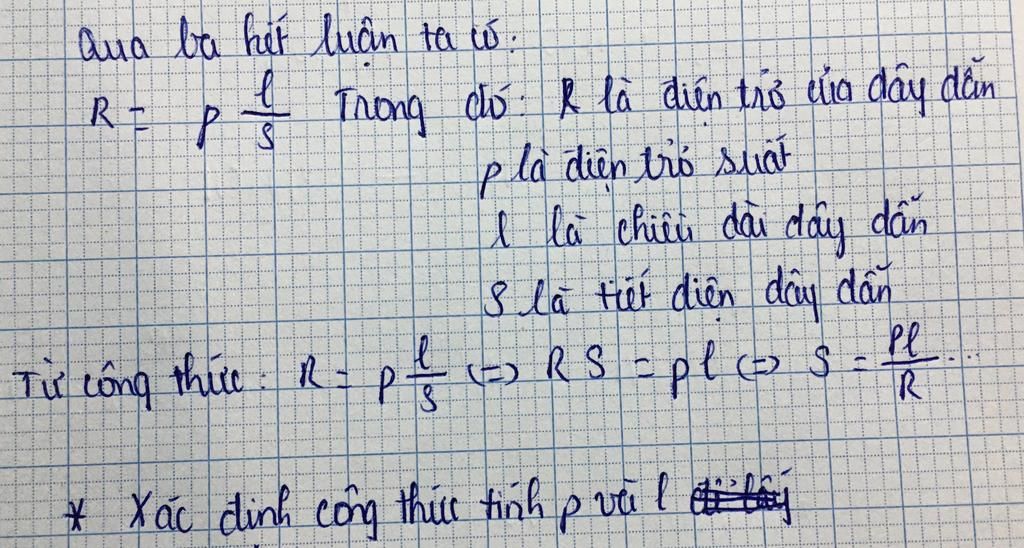 Qua ba kết luận ta có:
R = p l/S Trong đó: R là điện trở của dây dẫn
p là điện trở suất
l là chiều dài dây dẫn
S là tiết diện dây dẫn
Từ công thức: R = p l/S <=> R S = p l <=> S = pl/R ...
* Xác định công thức tính p và l